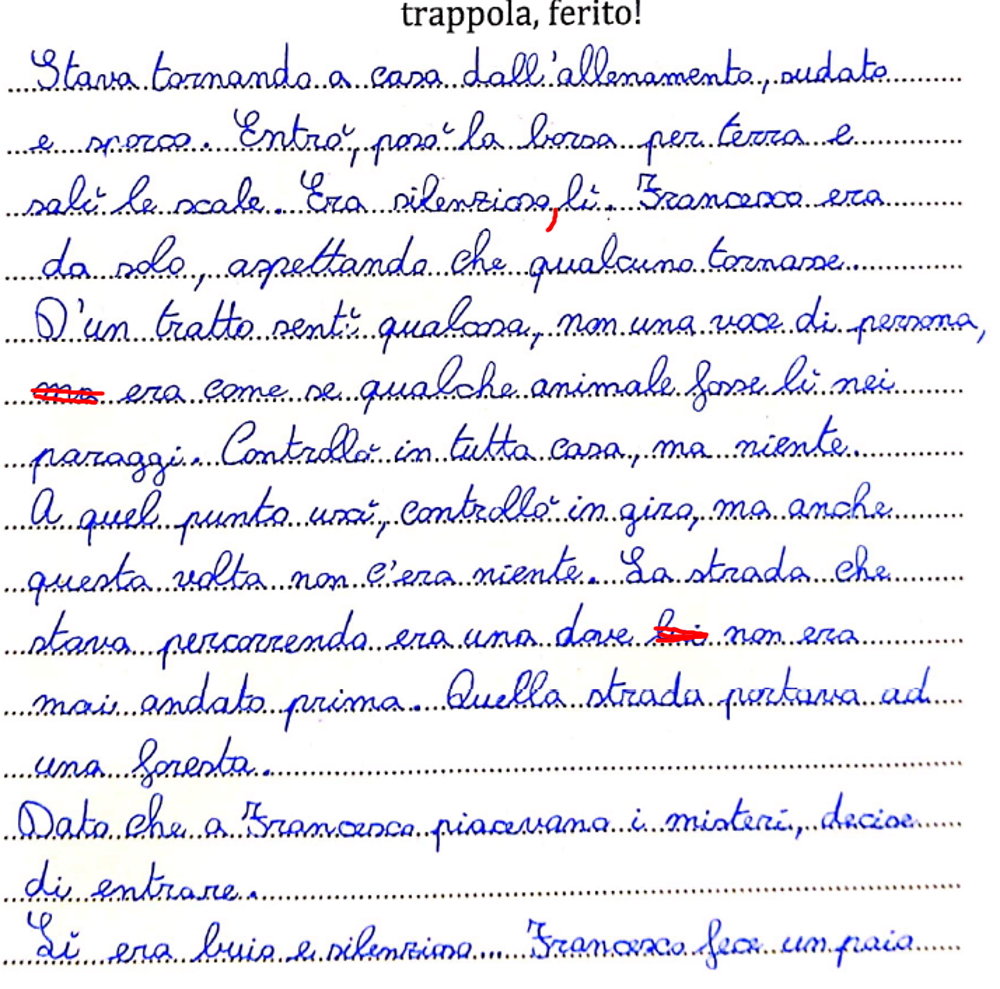 trappola, ferito!
Stava tornando a casa dall'allenamento, sudato
e sporco. Entrò, posò la borsa per terra e
salì le scale. Era silenzioso, lì. Francesco era
da solo, aspettando che qualcuno tornasse.
D'un tratto sentì qualcosa, non una voce di persona,
ma era come se qualche animale fosse lì nei
paraggi. Controllò in tutta casa, ma niente.
A quel punto uscì, controllò in giro, ma anche
questa volta non c'era niente. La strada che
stava percorrendo era una dove lui non era
mai andato prima. Quella strada portava ad
una foresta.
Dato che a Francesco piacevano i misteri, decise
di entrare.
Lì era buio e silenzioso... Francesco fece un paio